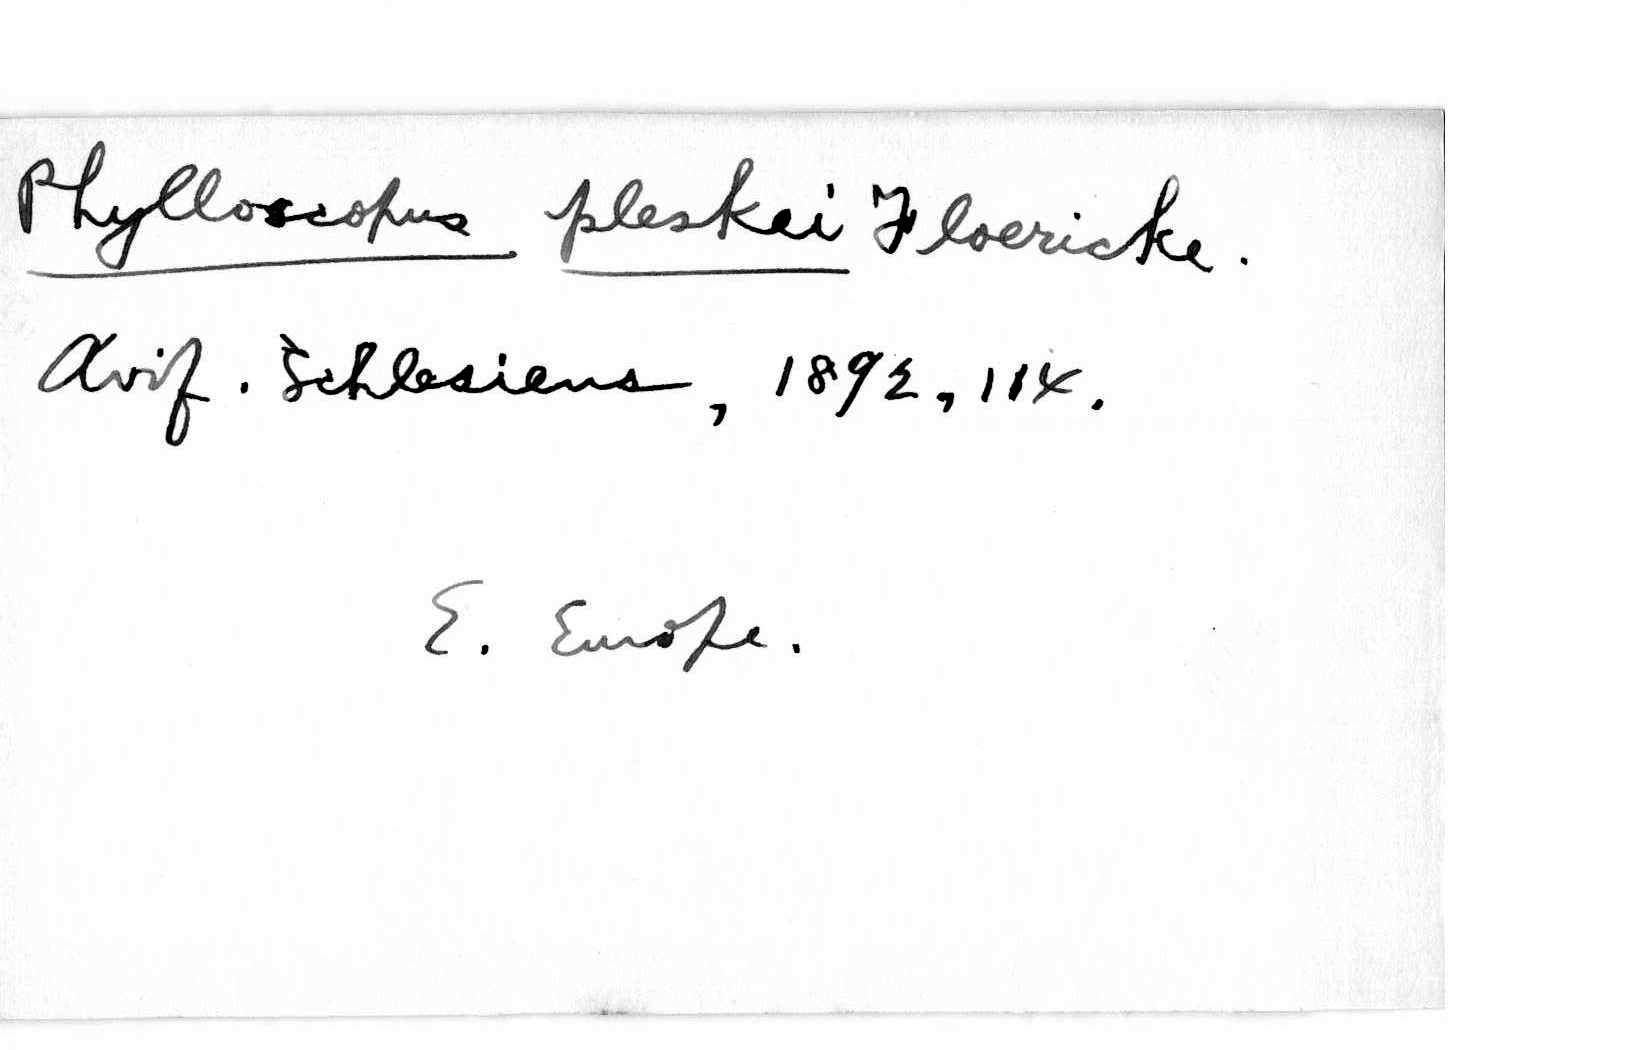 Phylloscopus pleskei Floericke.
Avif. Schlesiens, 1892, 114.
E. Europe.